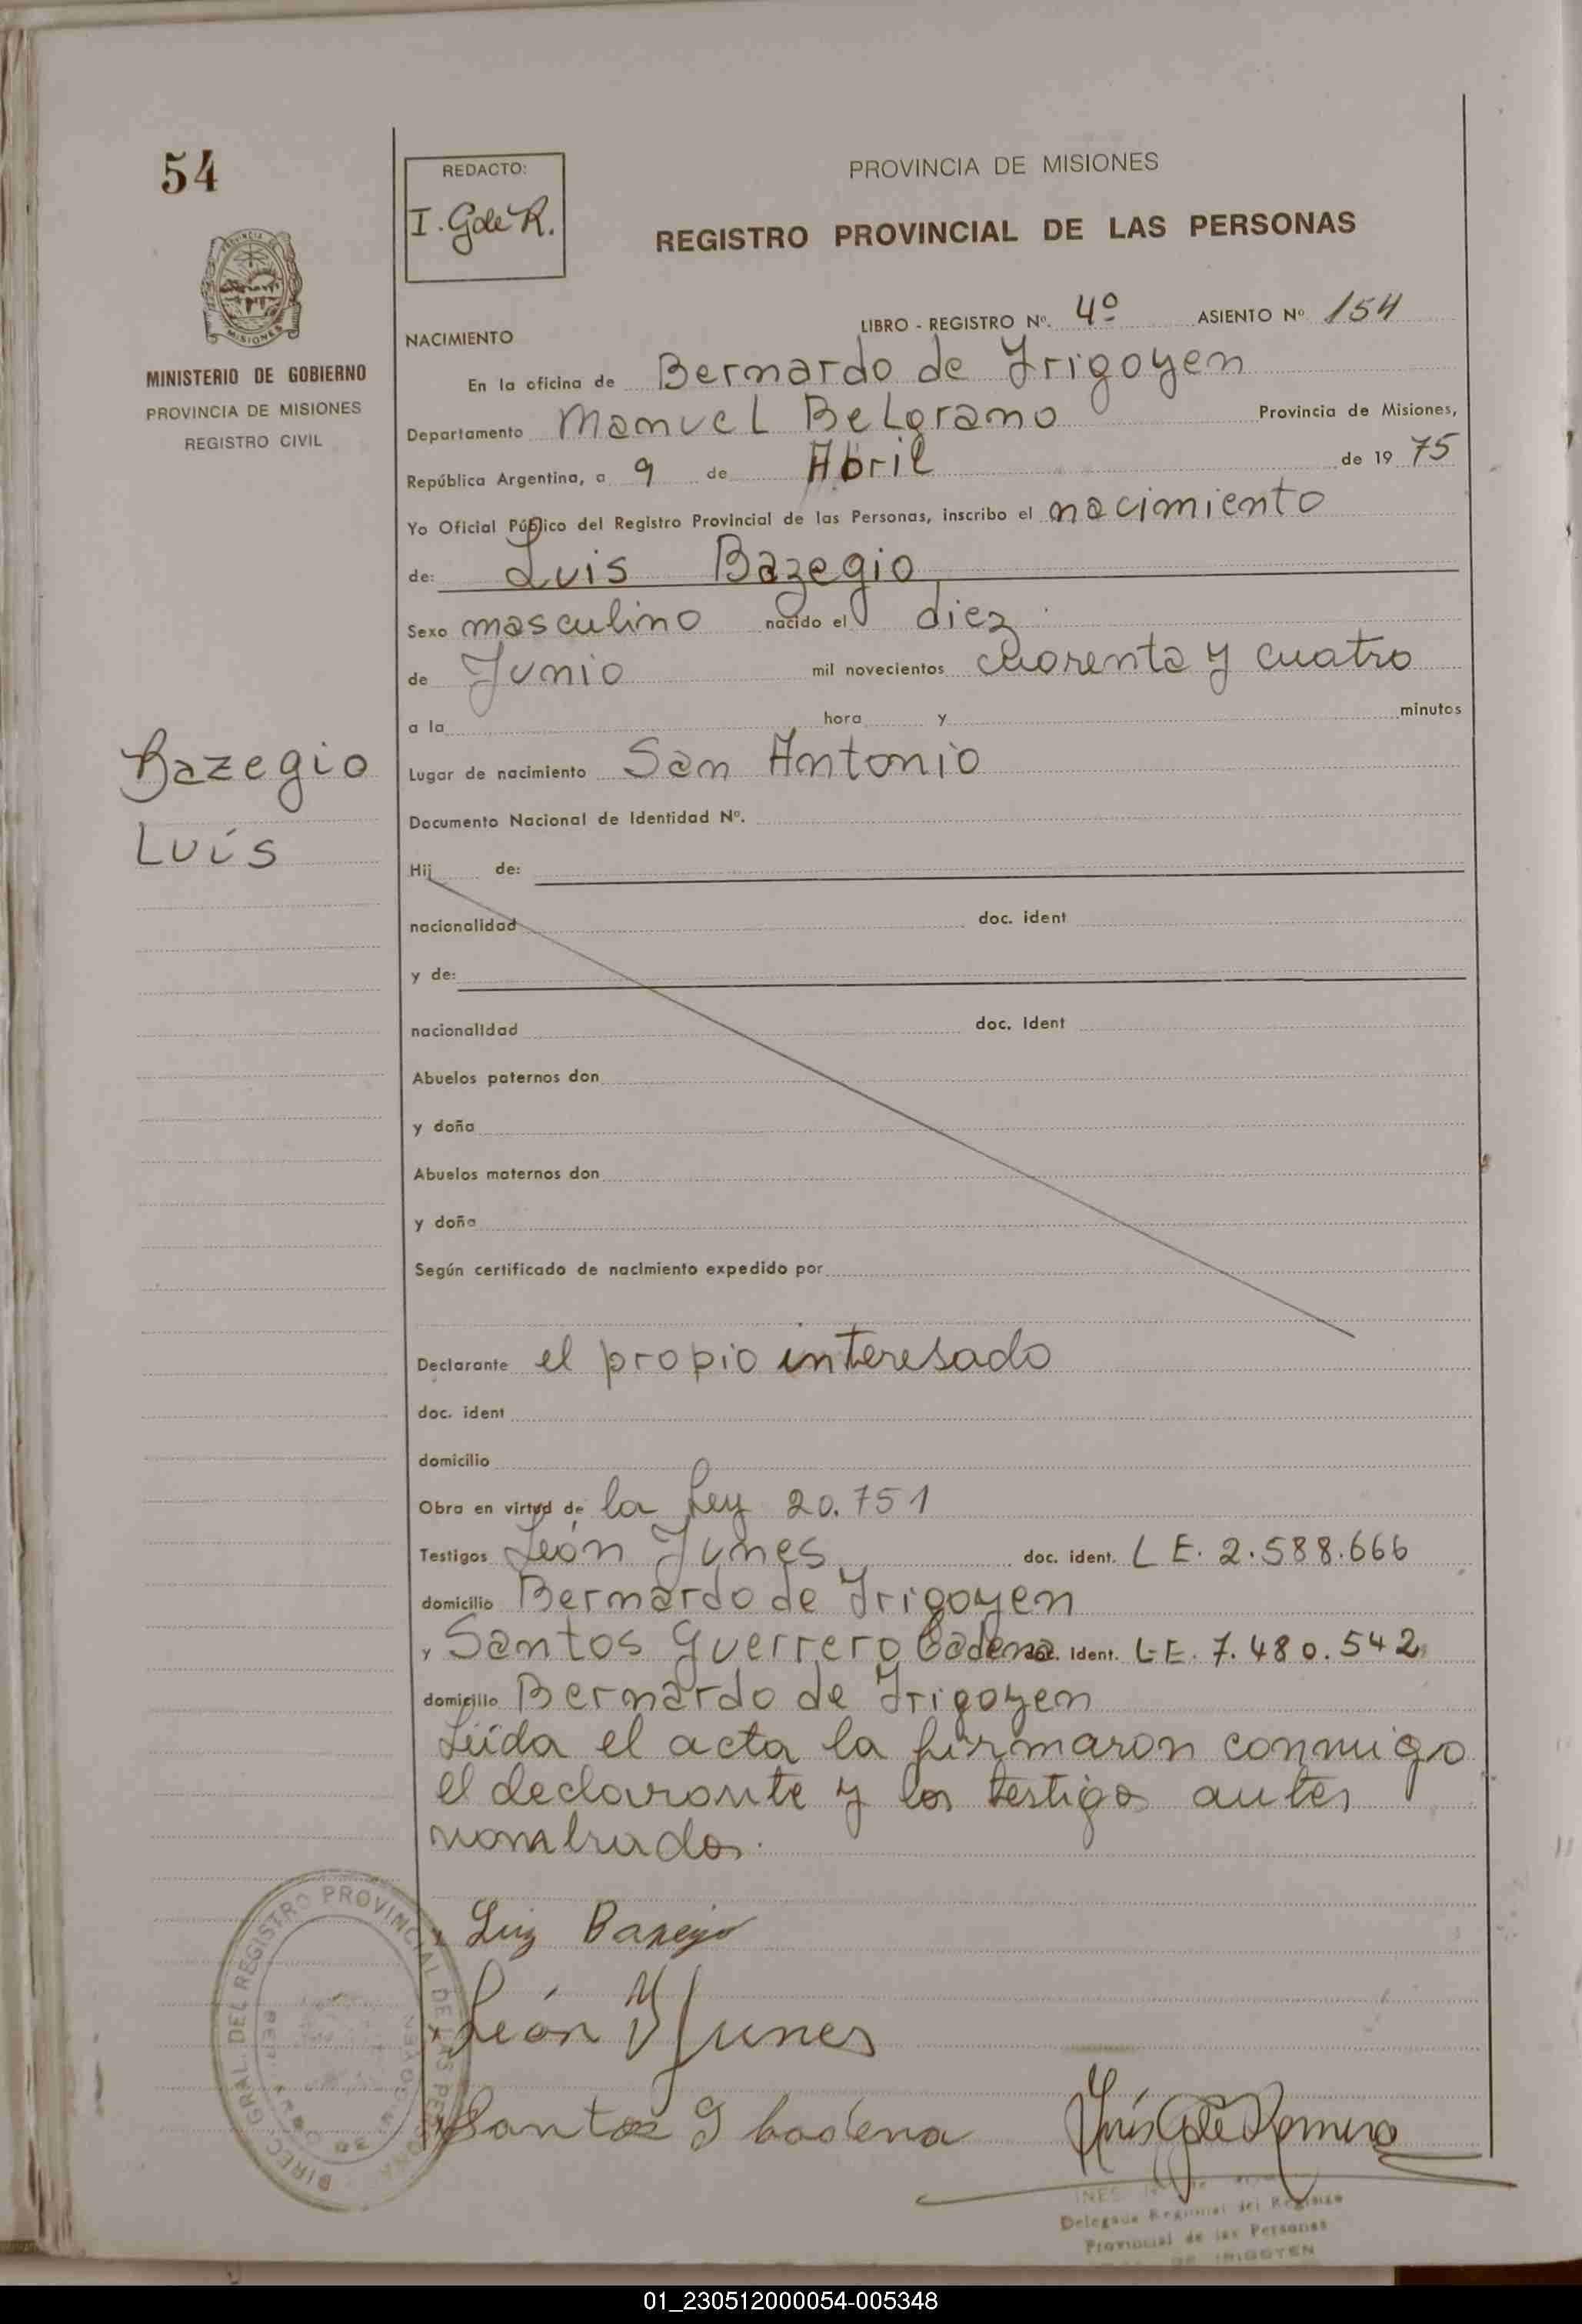 54
REDACTO:
I. G de R.
PROVINCIA DE MISIONES
REGISTRO PROVINCIAL DE LAS PERSONAS
PROVINCIA DE
MISIONES
MINISTERIO DE GOBIERNO
PROVINCIA DE MISIONES
REGISTRO CIVIL
LIBRO - REGISTRO Nº. 4º ASIENTO Nº 154
NACIMIENTO
En la oficina de Bernardo de Yrigoyen
Departamento Manuel Belgrano Provincia de Misiones,
República Argentina, a 9 de Abril de 19 75
Yo Oficial Público del Registro Provincial de las Personas, inscribo el nacimiento
de: Luis Bazegio
Sexo masculino nacido el diez
de Junio mil novecientos cuarenta y cuatro
a la hora y minutos
Bazegio
Luis
Lugar de nacimiento San Antonio
Documento Nacional de Identidad Nº.
Hij de:
nacionalidad doc. ident
y de:
nacionalidad doc. Ident
Abuelos paternos don
y doña
Abuelos maternos don
y doña
Según certificado de nacimiento expedido por
Declarante el propio interesado
doc. ident
domicilio
Obra en virtud de la Ley 20.751
Testigos León Junes doc. ident. L E. 2.588.666
domicilio Bernardo de Yrigoyen
y Santos Guerrero Cadena doc. Ident. L E. 7.480.542
domicilio Bernardo de Yrigoyen
Leída el acta la firmaron conmigo
el declarante y los testigos antes
nombrados.
x Luiz Bazegio
x León Junes
x Santos G Cadena
Inés G de Romero
DIREC. GRAL. DEL REGISTRO PROVINCIAL DE LAS PERSONAS
INES
Delegada Regional del Registro
Provincial de las Personas
DE IRIGOYEN
01_230512000054-005348